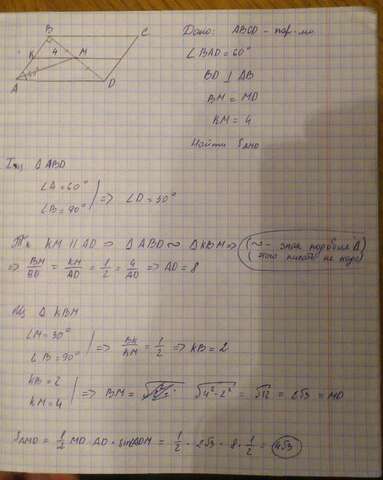 B
C
K
4
M
A
D
Дано: ABCD - пар-мм
∠BAD = 60°
BD ⊥ AB
BM = MD
KM = 4
Найти SAMD
△ ABD
∠A = 60°
∠B = 90° | => ∠D = 30°
Т.к KM || AD => △ ABD ∾ △ KBM => (∾ - знак подобия △)
(этого писать не надо)
=> BM/BD = KM/AD = 1/2 = 4/AD => AD = 8
△ KBM
∠M = 30°
∠B = 90° | => BK/KM = 1/2 => KB = 2
KB = 2
KM = 4 | => BM = √4²-2² = √12 = 2√3 = MD
SAMD = 1/2 MD · AD · sin ADM = 1/2 · 2√3 · 8 · 1/2 = 4√3